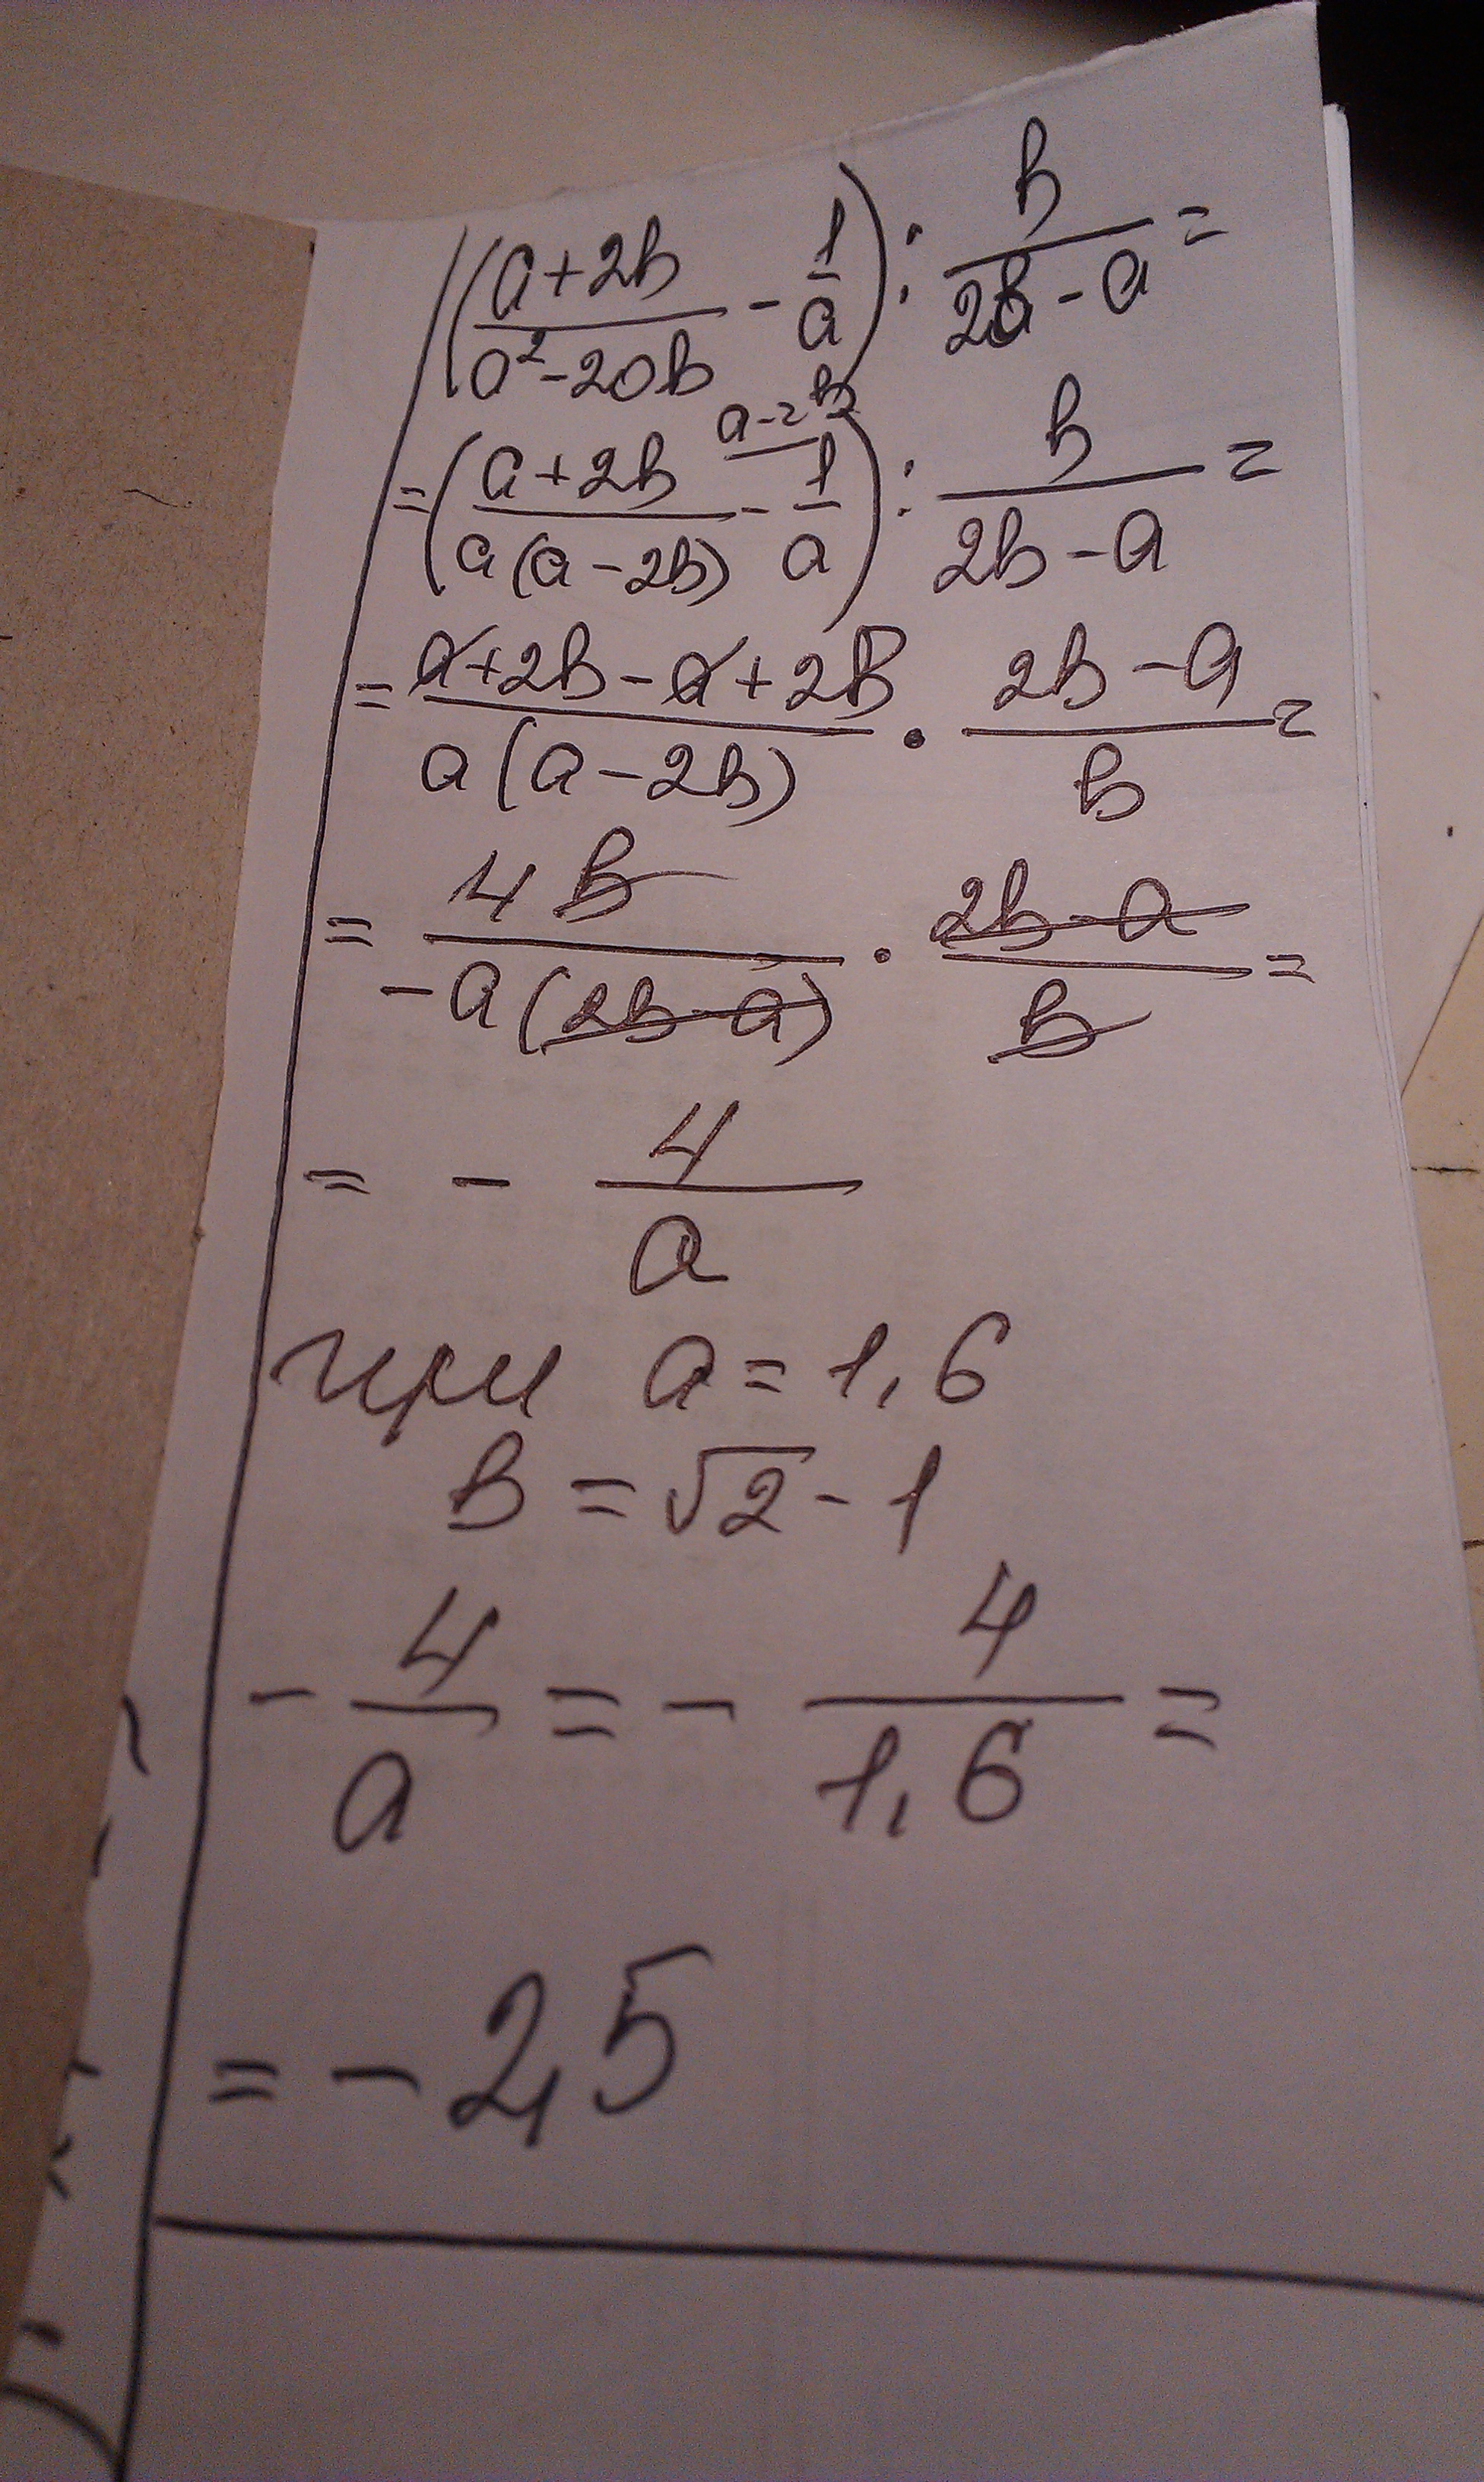 ((a+2b)/(a²-2ab) - 1/a) : b/(2b-a) =
= ((a+2b)/(a(a-2b)) - 1/a ^(a-2b)) : b/(2b-a) =
= (a+2b-a+2b)/(a(a-2b)) · (2b-a)/b =
= 4b/(-a(2b-a)) · (2b-a)/b =
= - 4/a
при a = 1,6
b = √2 - 1
- 4/a = - 4/1,6 =
= - 2,5